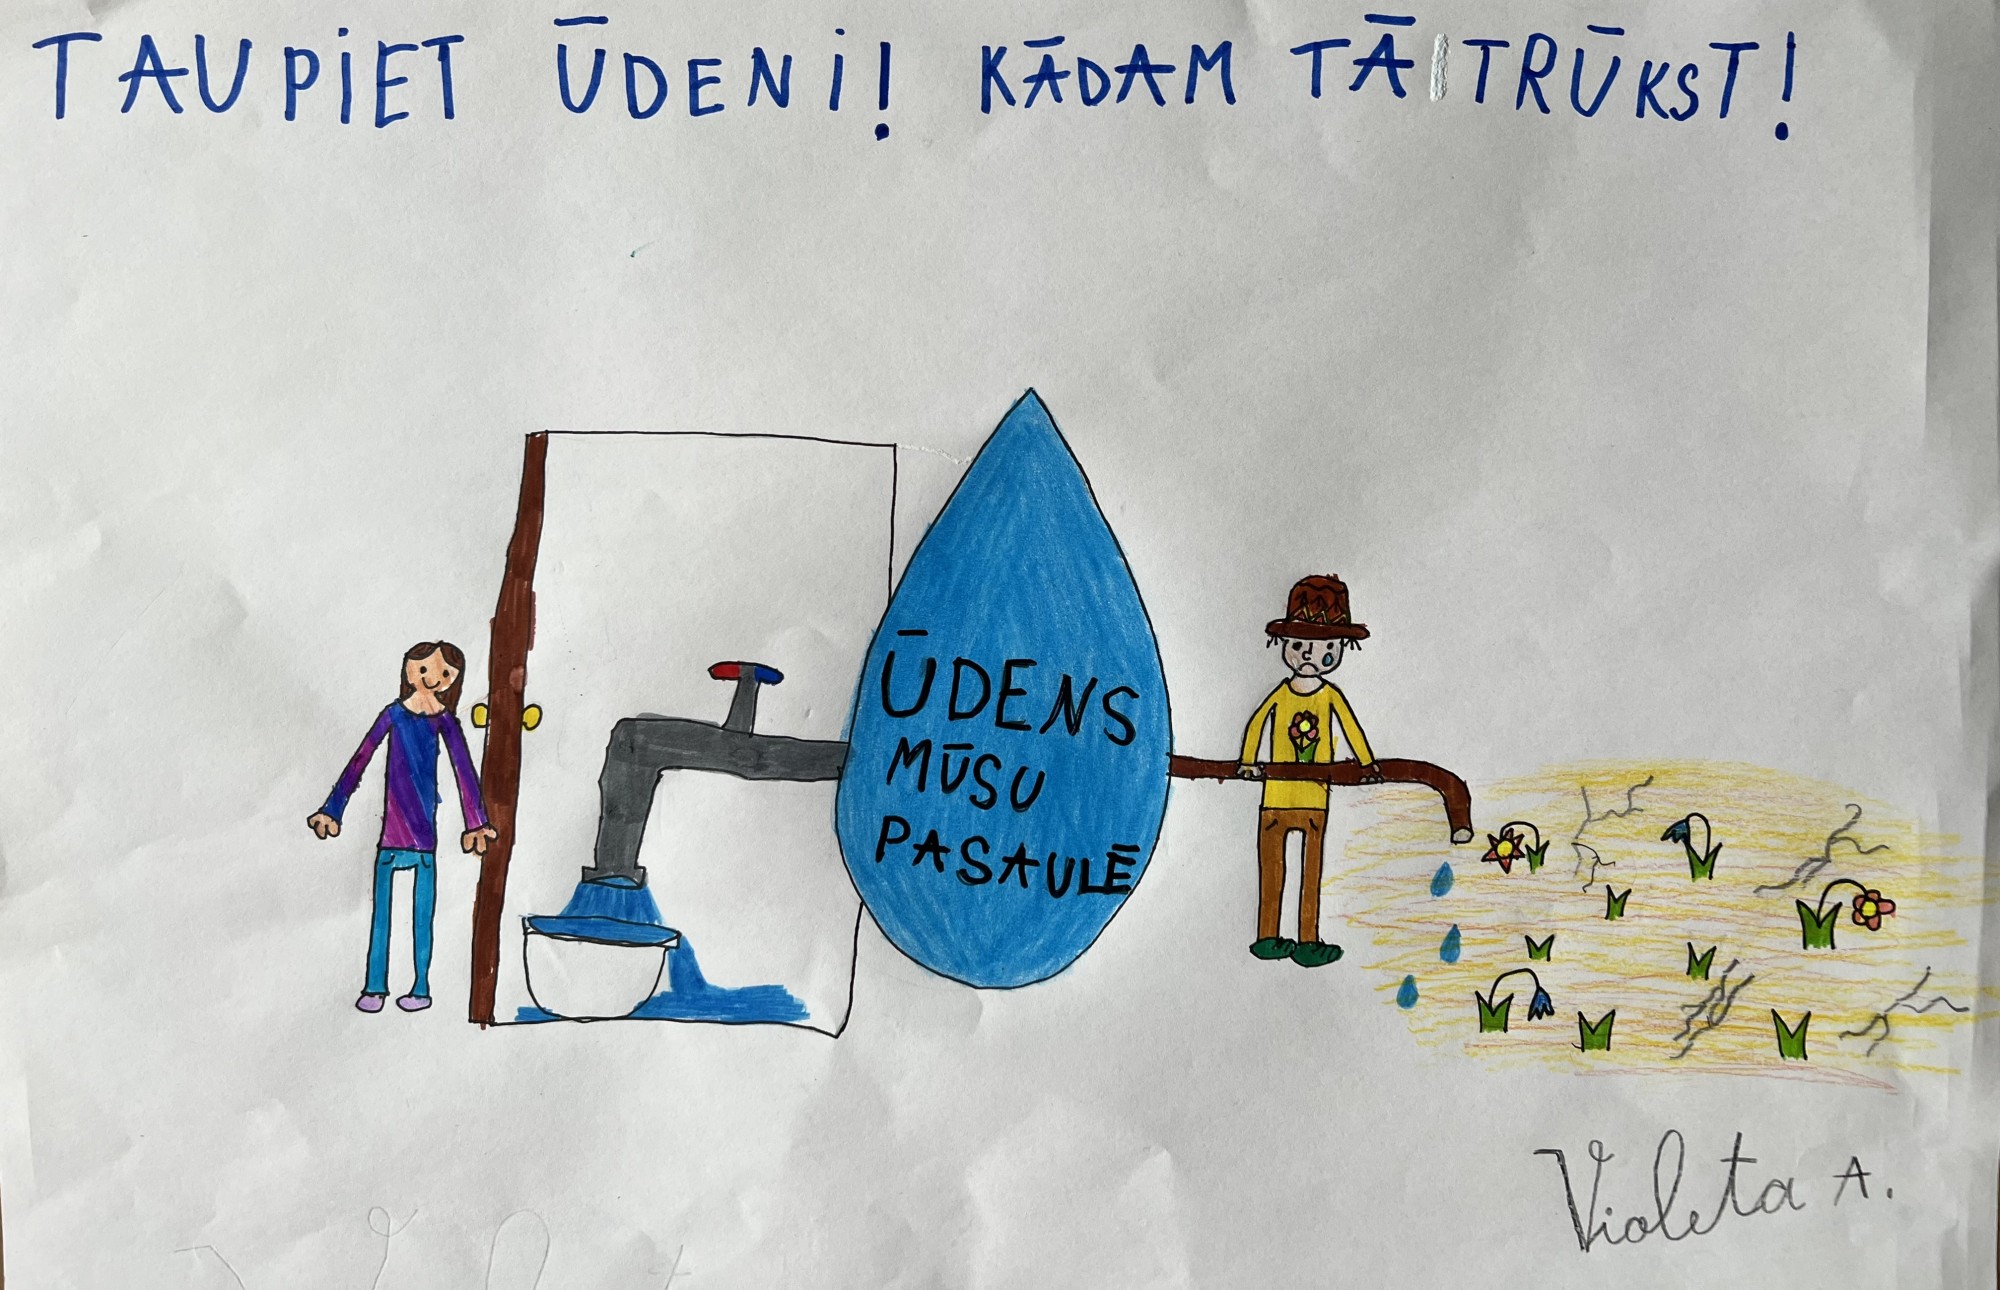 TAUPIET ŪDENI! KĀDAM TĀ TRŪKST!
ŪDENS
MŪSU
PASAULĒ
Violeta A.